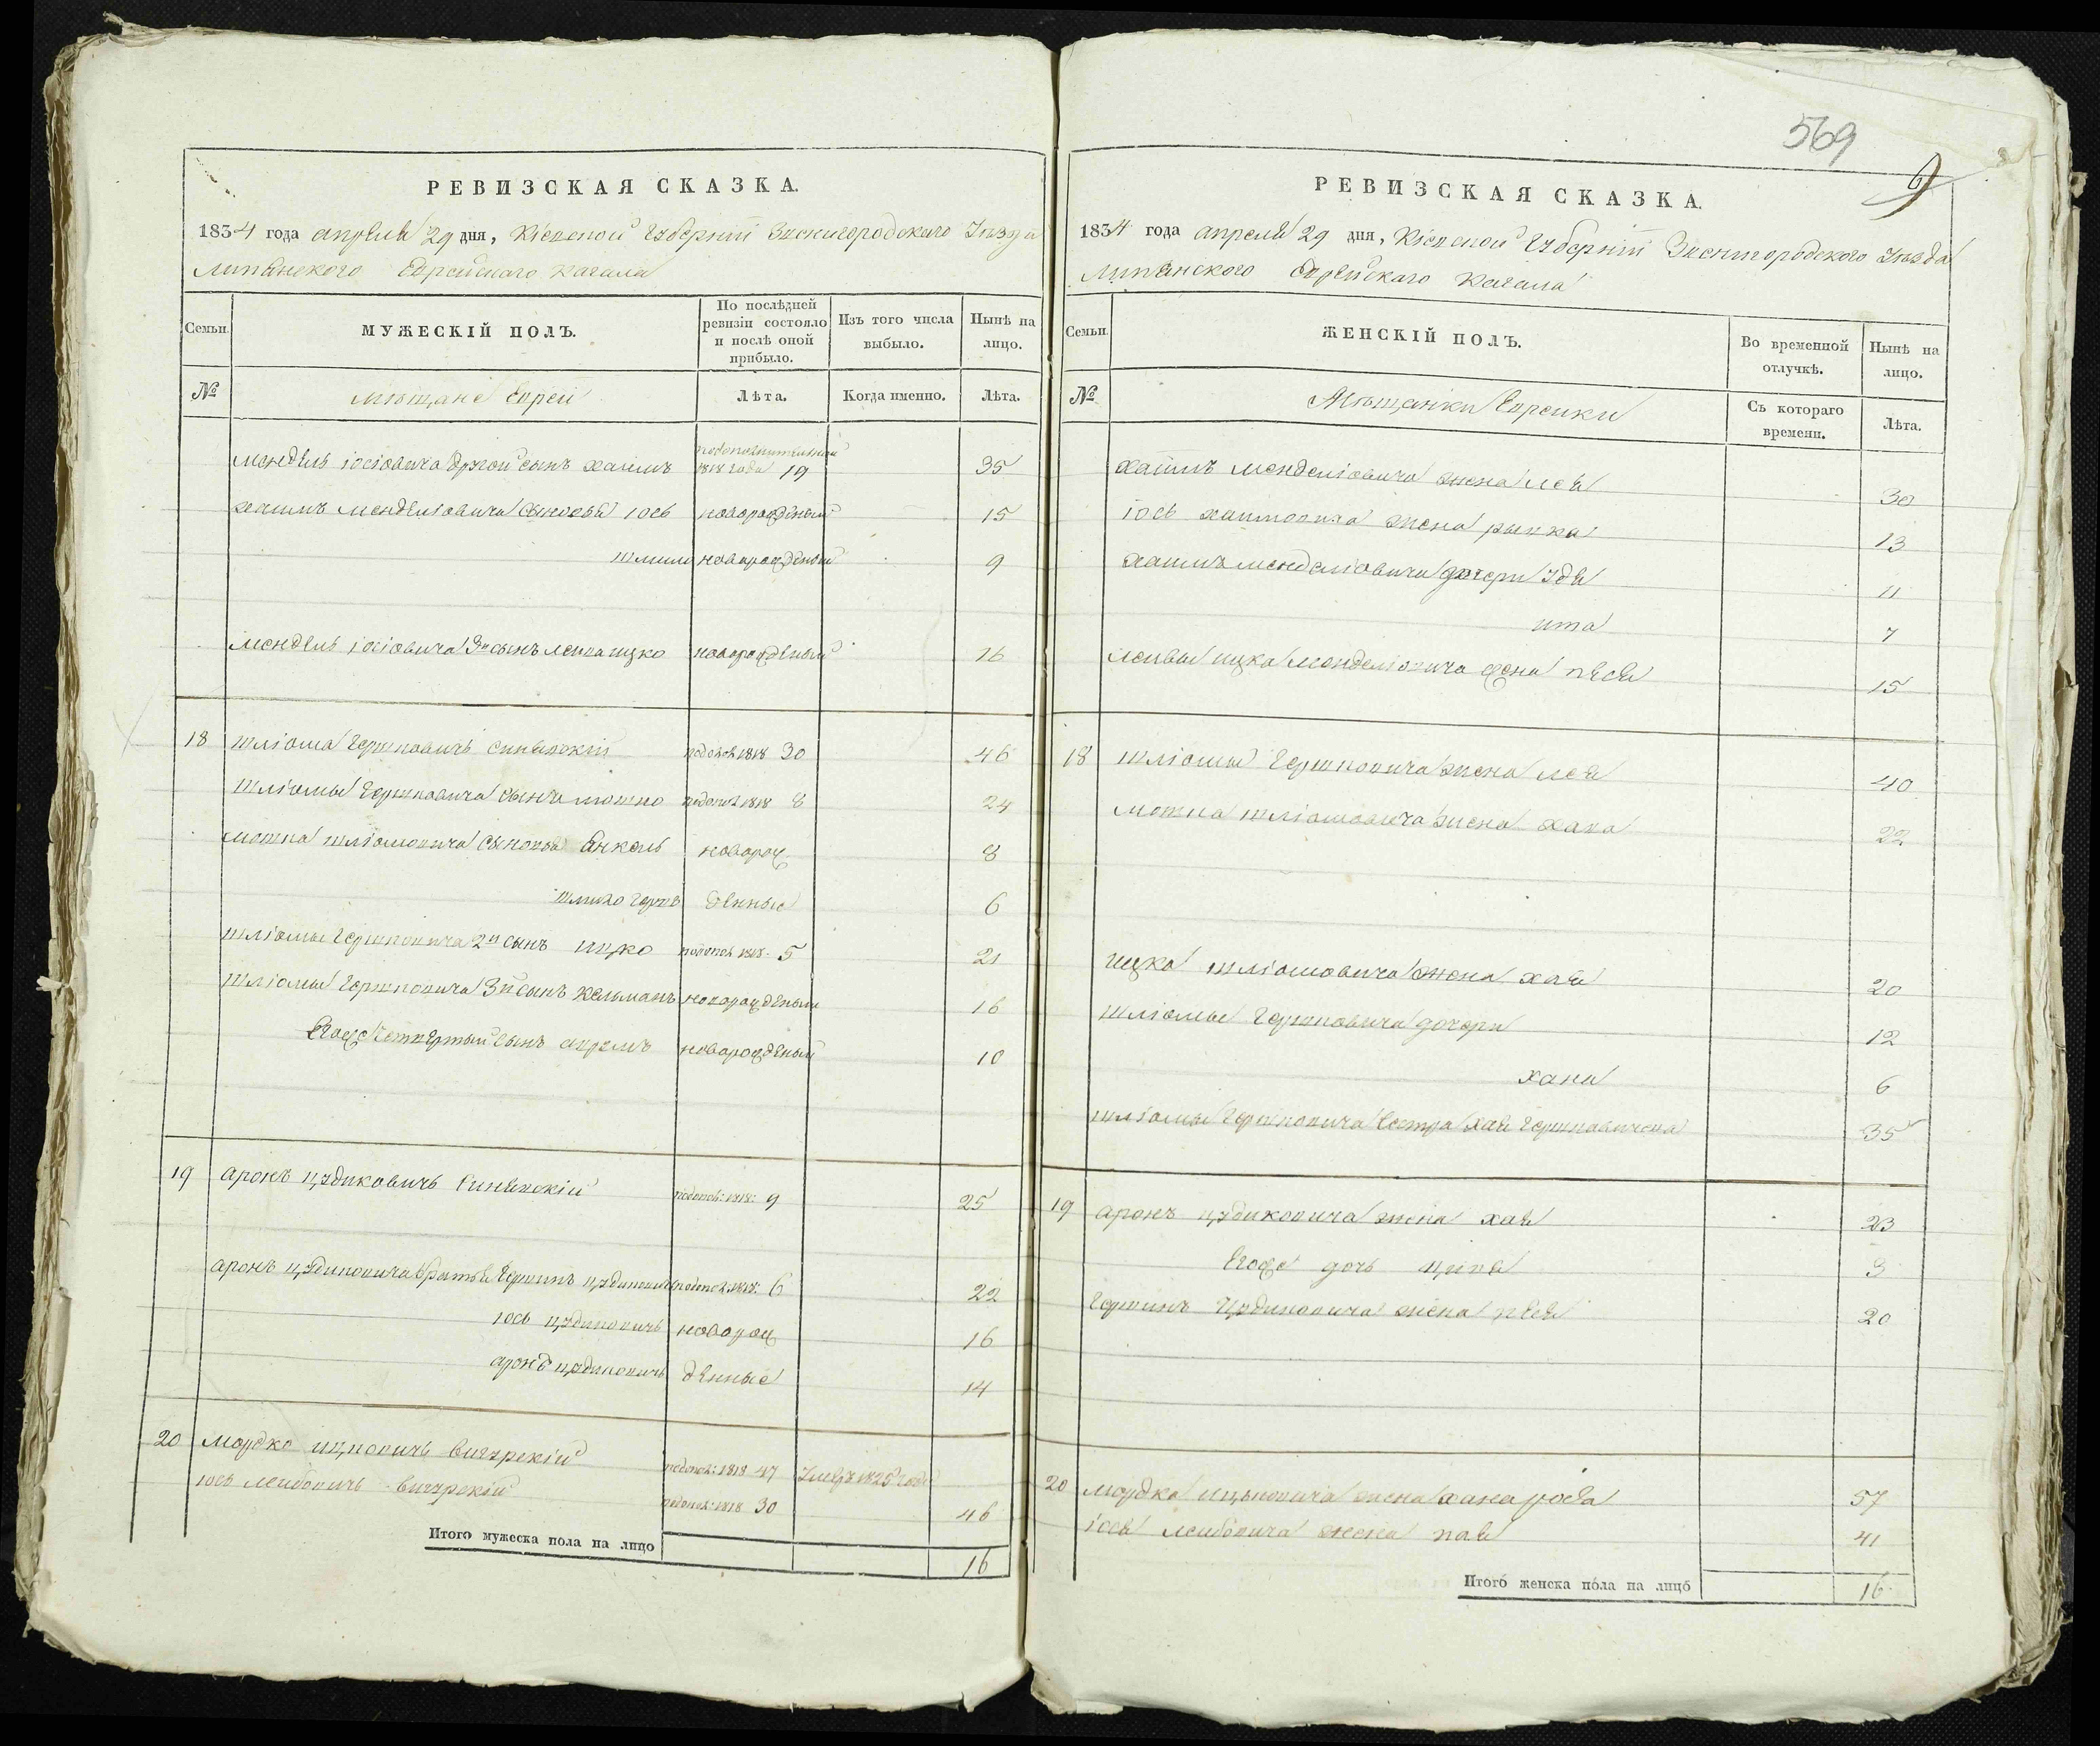 РЕВИЗСКАЯ СКАЗКА.
1834 года апреля 29 дня, Кіевской Губерніи Звенигородского Уезда
Лисянского Еврейскаго Кагала
Семьи.
МУЖЕСКІЙ ПОЛЪ.
По послѣдней ревизіи состояло и послѣ оной прибыло.
Изъ того числа выбыло.
Нынѣ на лицо.
№ Мѣщане Евреи Лѣта. Когда именно. Лѣта.
Мендель Іосіовича другой сынъ Хаимъ 1818 года 19 35
Хаимъ Менделіовича сыновья Іось новорожденый 15
Шмило новорожденый 9
Мендель Іосіовича 3й сынъ Леиба Ицко новорожденый 16
18 Шліома Гершковичь Синявскій подопол 1818 30 46
Шліомы Гершковича сынъ Мошко подопол 1818 8 24
Мошка Шліомовича сыновья Янкель новорож 8
Гершъ денные 6
Шліомы Гершковича 2й сынъ Ицко подопол 1818 5 21
Шліомы Гершковича 3й сынъ Кельманъ новорожденый 16
Егоже четвертый сынъ Аврумъ новорожденый 10
19 Аронъ Цудиковичь Синявскій подопол: 1818: 9 25
Аронъ Цудиковича братья Гершикъ Цудиковичь подопол 1818: 6 22
Іось Цудиковичь новорож 16
Аронъ Цудиковичь денные 14
20 Мордко Ицковичь подопол: 1818 47 Умеръ 1825 года
Іось Леибовичь подопол: 1818 30 46
Итого мужеска пола на лицо 16
569
РЕВИЗСКАЯ СКАЗКА.
1834 года апреля 29 дня, Кіевской Губерніи Звенигородского Уезда
Лисянского Еврейскаго Кагала
Семьи.
ЖЕНСКІЙ ПОЛЪ.
Во временной отлучкѣ.
Нынѣ на лицо.
№ Мѣщанки Еврейки Съ котораго времени. Лѣта.
Хаимъ Менделіовича жена Лея 30
Іось Хаимовича жена Рывка 13
Хаимъ Менделіовича дочери Удя 11
Ита 7
Леибы Ицка Менделіовича жена Песя 15
18 Шліомы Гершковича жена Лея 40
Мошка Шліомовича жена Хава 22
Ицка Шліомовича жена Хая 20
Шліомы Гершковича дочери 12
Хана 6
Шліомы Гершковича сестра Хая Гершковичева 35
19 Аронъ Цудиковича жена Хая 23
Егоже дочь Ципа 3
Гершикъ Цудиковича жена Песя 20
20 Мордка Ицьковича жена Хана 57
Іося Леибовича жена 41
Итого женска пола на лицо 16